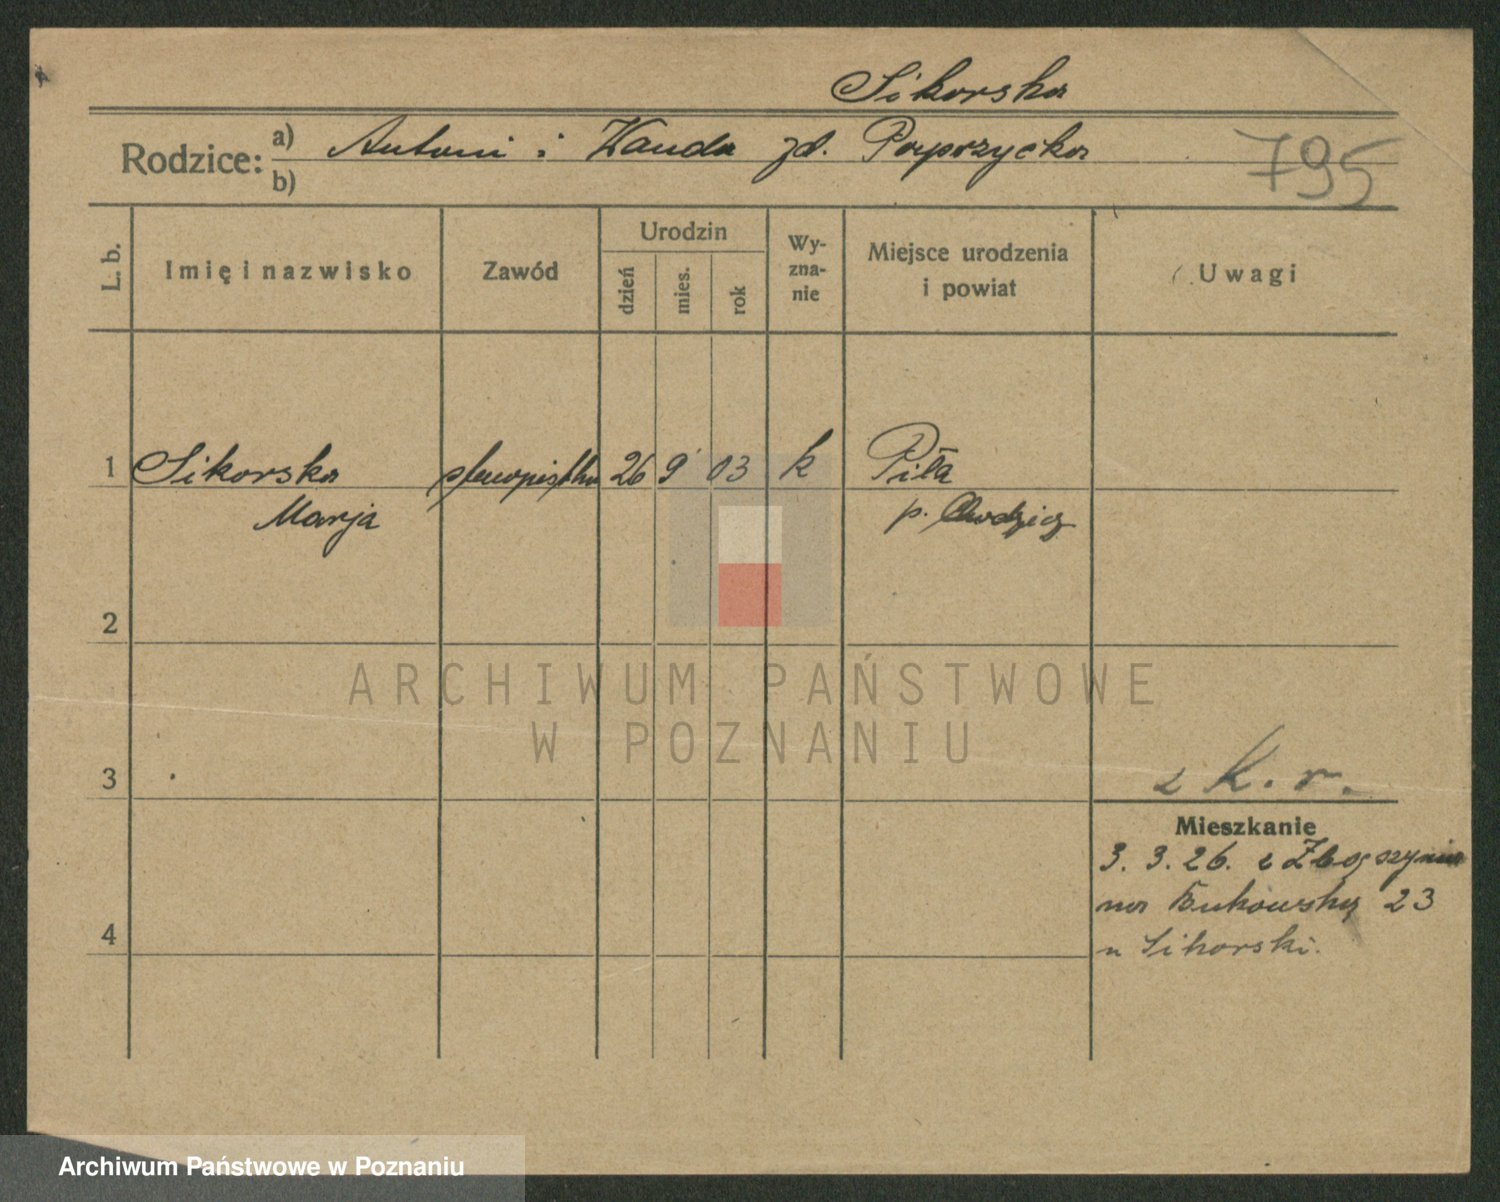 Sikorska
Rodzice: a) Antoni i Wanda zd. Poprzycka
b)
795
L. b. Imię i nazwisko Zawód Urodzin dzień mies. rok Wy-zna-nie Miejsce urodzenia i powiat Uwagi
1 Sikorska stenopistka 26 9 03 k Piła
Marja p. Chodzież
2
ARCHIWUM PAŃSTWOWE
W POZNANIU
3 z K. r.
Mieszkanie
3. 3. 26. z
na Bukowską 23
4 u Sikorski.
Archiwum Państwowe w Poznaniu